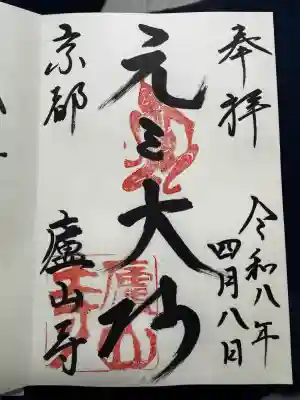 奉拝
令和八年
四月八日
元三大師
京都
廬山寺